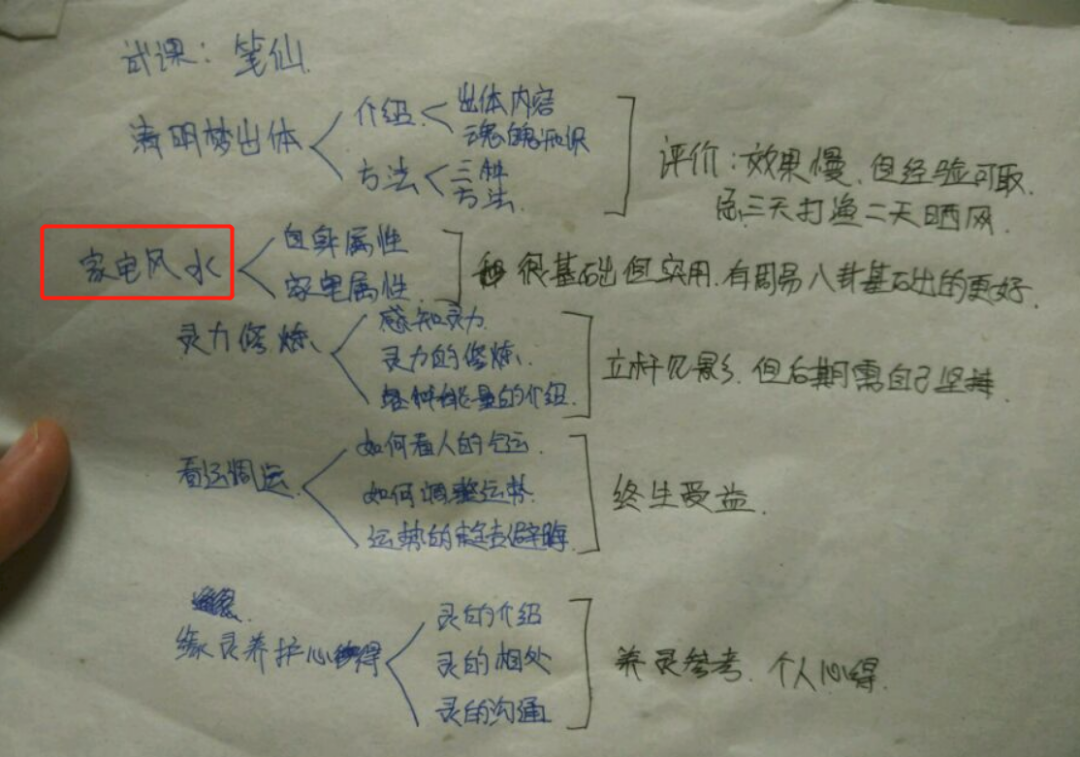 试课：笔仙
清明梦出体
介绍
出体内容
魂魄知识
方法
三种
方法
评价：效果慢，但经验可取，
忌三天打渔二天晒网
家电风水
自身属性
家电属性
很基础但实用，有周易八卦基础的更好
灵力修炼
感知灵力
灵力的修炼
各种能量的介绍
立杆见影，但后期需自己坚持
看运调运
如何看人的气运
如何调整运势
运势的趋吉避晦
终生受益
缘灵养护心得
灵的介绍
灵的相处
灵的沟通
养灵参考，个人心得